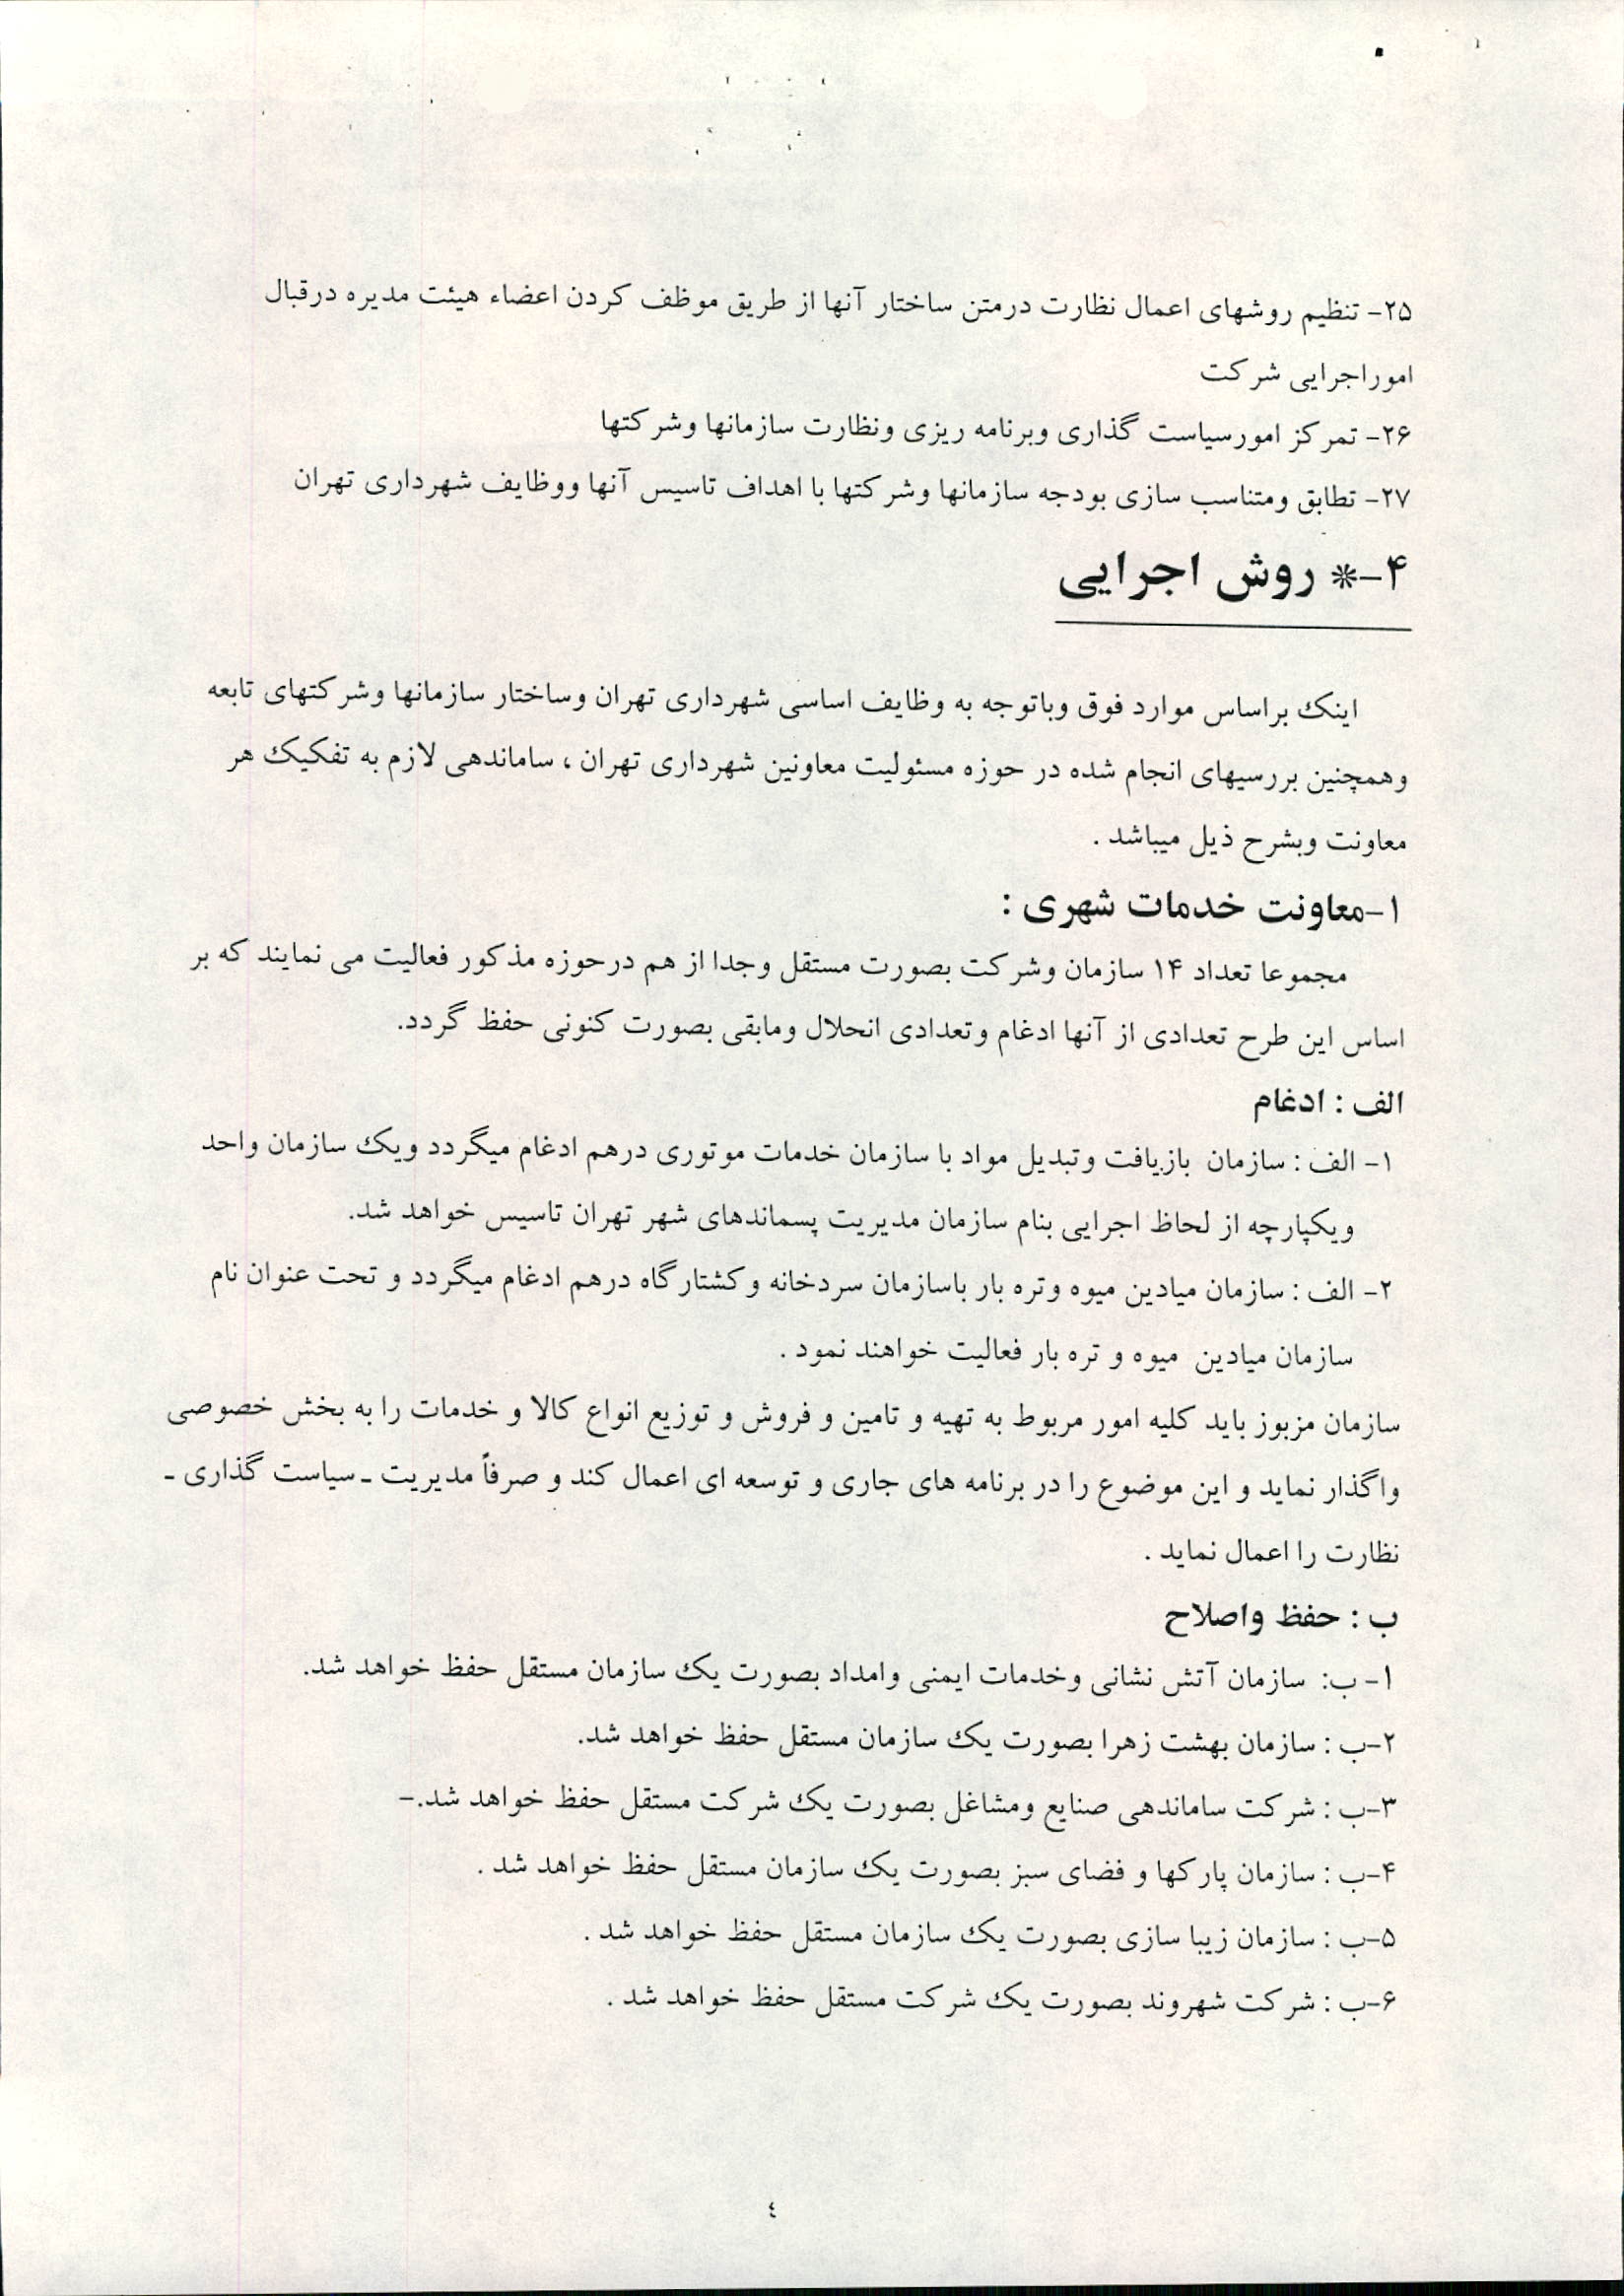 ۲۵- تنظیم روشهای اعمال نظارت درمتن ساختار آنها از طریق موظف کردن اعضاء هیئت مدیره درقبال
اموراجرایی شرکت
۲۶- تمرکز امورسیاست گذاری وبرنامه ریزی ونظارت سازمانها وشرکتها
۲۷- تطابق ومتناسب سازی بودجه سازمانها وشرکتها با اهداف تاسیس آنها ووظایف شهرداری تهران
۴-* روش اجرایی
اینک براساس موارد فوق وباتوجه به وظایف اساسی شهرداری تهران وساختار سازمانها وشرکتهای تابعه
وهمچنین بررسیهای انجام شده در حوزه مسئولیت معاونین شهرداری تهران ، ساماندهی لازم به تفکیک هر
معاونت وبشرح ذیل میباشد .
۱-معاونت خدمات شهری :
مجموعا تعداد ۱۴ سازمان وشرکت بصورت مستقل وجدا از هم درحوزه مذکور فعالیت می نمایند که بر
اساس این طرح تعدادی از آنها ادغام وتعدادی انحلال ومابقی بصورت کنونی حفظ گردد.
الف : ادغام
۱- الف : سازمان بازیافت وتبدیل مواد با سازمان خدمات موتوری درهم ادغام میگردد ویک سازمان واحد
ویکپارچه از لحاظ اجرایی بنام سازمان مدیریت پسماندهای شهر تهران تاسیس خواهد شد.
۲- الف : سازمان میادین میوه وتره بار باسازمان سردخانه وکشتارگاه درهم ادغام میگردد و تحت عنوان نام
سازمان میادین میوه و تره بار فعالیت خواهند نمود .
سازمان مزبوز باید کلیه امور مربوط به تهیه و تامین و فروش و توزیع انواع کالا و خدمات را به بخش خصوصی
واگذار نماید و این موضوع را در برنامه های جاری و توسعه ای اعمال کند و صرفاً مدیریت ـ سیاست گذاری ـ
نظارت را اعمال نماید .
ب : حفظ واصلاح
۱- ب: سازمان آتش نشانی وخدمات ایمنی وامداد بصورت یک سازمان مستقل حفظ خواهد شد.
۲-ب : سازمان بهشت زهرا بصورت یک سازمان مستقل حفظ خواهد شد.
۳-ب : شرکت ساماندهی صنایع ومشاغل بصورت یک شرکت مستقل حفظ خواهد شد.-
۴-ب : سازمان پارکها و فضای سبز بصورت یک سازمان مستقل حفظ خواهد شد .
۵-ب : سازمان زیبا سازی بصورت یک سازمان مستقل حفظ خواهد شد .
۶-ب : شرکت شهروند بصورت یک شرکت مستقل حفظ خواهد شد .
٤